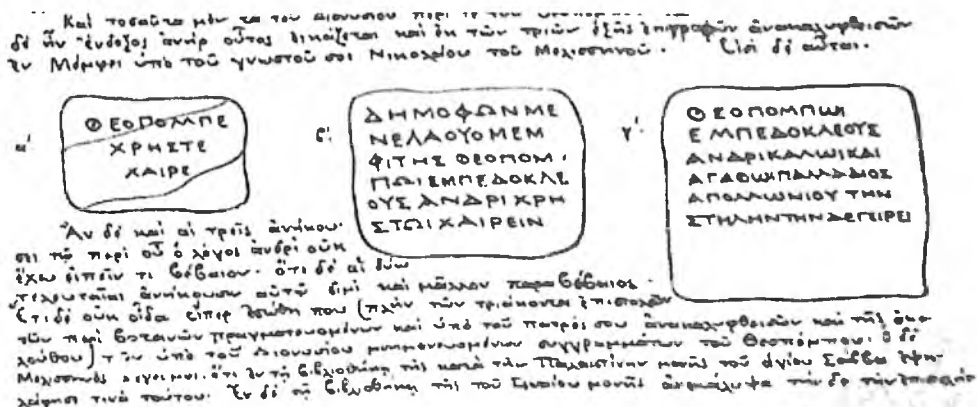 Καὶ τοσαῦτα μὲν τὰ τοῦ Διονυσίου περὶ
δὲ ἦν ἔνδοξος ἀνὴρ οὗτος εἰκάζεται καὶ ἐκ τῶν τριῶν ἑξῆς ἐπιγραφῶν ἀνακαλυφθεισῶν
ἐν Μέμφει ὑπὸ τοῦ γνωστοῦ σοι Νικολαΐου τοῦ Μελισσηνοῦ. Εἰσὶ δὲ αὗται.
α'.
ΘΕΟΠΟΜΠΕ
ΧΡΗΣΤΕ
ΧΑΙΡΕ
ϐ'.
ΔΗΜΟΦΩΝΜΕ
ΝΕΛΑΟΥΟΜΕΜ
ΦΙΤΗΣ ΘΕΟΠΟΜ
ΠΩΙΕΜΠΕΔΟΚΛΕ
ΟΥΣ ΑΝΔΡΙ ΧΡΗ
ΣΤΩΙ ΧΑΙΡΕΙΝ
γ'.
ΘΕΟΠΟΜΠΩΙ
ΕΜΠΕΔΟΚΛΕΟΥΣ
ΑΝΔΡΙΚΑΛΩΙΚΑΙ
ΑΓΑΘΩΙΠΑΛΛΑΔΙΟΣ
ΑΠΟΛΛΩΝΙΟΥ ΤΗΝ
ΣΤΗΛΗΝΤΗΝΔΕΓΕΙΡΕΙ
Ἂν δὲ καὶ αἱ τρεῖς ἀνήκου
σι τῷ περὶ οὗ ὁ λόγος ἀνδρὶ οὐκ
ἔχω εἰπεῖν τι βέβαιον. ὅτι δὲ αἱ δύω
τελευταῖαι ἀνήκουσιν αὐτῷ εἰμὶ καὶ μᾶλλον παραβέβαιος.
Ἔτι δὲ οὐκ οἶδα εἴπερ ἐσώθη που (πλὴν τῶν τριάκοντα ἐπιστολῶν
τῶν περὶ βοτανῶν πραγματευομένων καὶ ὑπὸ τοῦ πατρός σου ἀνακαλυφθεισῶν καὶ τῆς ἀκο
λούθου) τῶν ὑπὸ τοῦ Διονυσίου μνημονευομένων συγγραμμάτων τοῦ Θεοπόμπου. ὁ δὲ
Μελισσηνὸς λέγει μοι. ὅτι ἐν τῇ βιβλιοθήκῃ τῆς κατὰ τὴν Παλαιστίνην μονῆς τοῦ ἁγίου Σάββα
τινὰ τούτου. Ἐν δὲ τῇ βιβλιοθήκῃ τῆς τοῦ Σιναίου μονῆς ἀνεκάλυψα τήνδε τὴν ἐπιστολήν